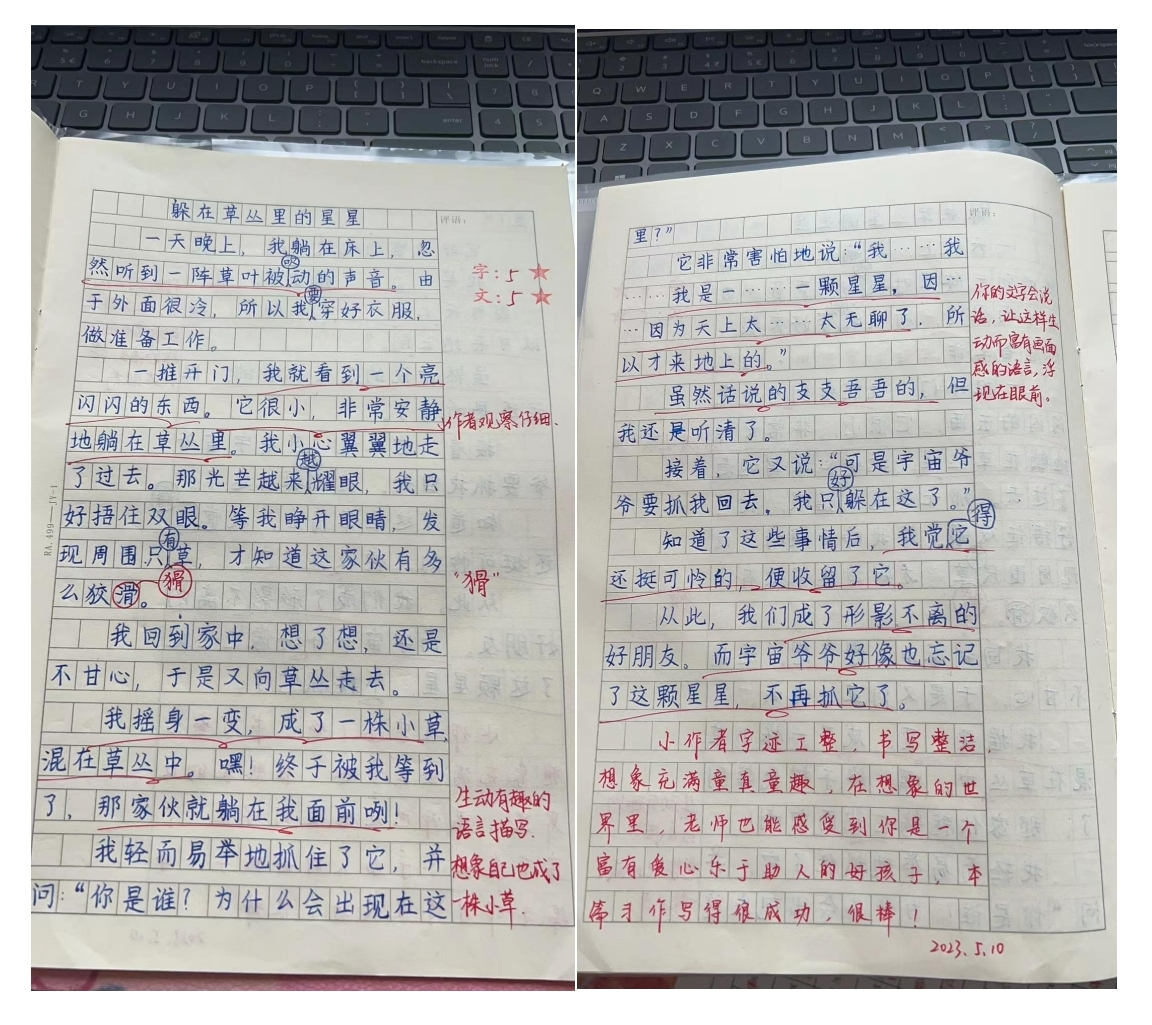 躲在草丛里的星星
一天晚上，我躺在床上，忽
然听到一阵草叶被吹动的声音。由
于外面很冷，所以我要穿好衣服，
做准备工作。
一推开门，我就看到一个亮
闪闪的东西。它很小，非常安静
地躺在草丛里。我小心翼翼地走
了过去。那光芒越来越耀眼，我只
好捂住双眼。等我睁开眼睛，发
现周围只有草，才知道这家伙有多
么狡滑。
猾
我回到家中，想了想，还是
不甘心，于是又向草丛走去。
我摇身一变，成了一株小草，
混在草丛中。嘿！终于被我等到
了，那家伙就躺在我面前咧！
我轻而易举地抓住了它，并
问：“你是谁？为什么会出现在这
评语：
字：5 ★
文：5 ★
小作者观察仔细.
“猾”
生动有趣的
语言描写.
想象自己也成了
一株小草.
RA.499—JY-1
里？”
它非常害怕地说：“我……我
……我是……一颗星星，因…
…因为天上太……太无聊了，所
以才来地上的。”
虽然话说的支支吾吾的，但
我还是听清了。
接着，它又说：“可是宇宙爷
爷要抓我回去，我只好躲在这了。”
知道了这些事情后，我觉得它
还挺可怜的，便收留了它。
从此，我们成了形影不离的
好朋友。而宇宙爷爷好像也忘记
了这颗星星，不再抓它了。
小作者字迹工整，书写整洁，
想象充满童真童趣，在想象的世
界里，老师也能感受到你是一个
富有爱心乐于助人的好孩子，本
篇习作写得很成功，很棒！
2023.5.10
评语：
你的文字会说
话，让这样生
动而富有画面
感的语言，浮
现在眼前。